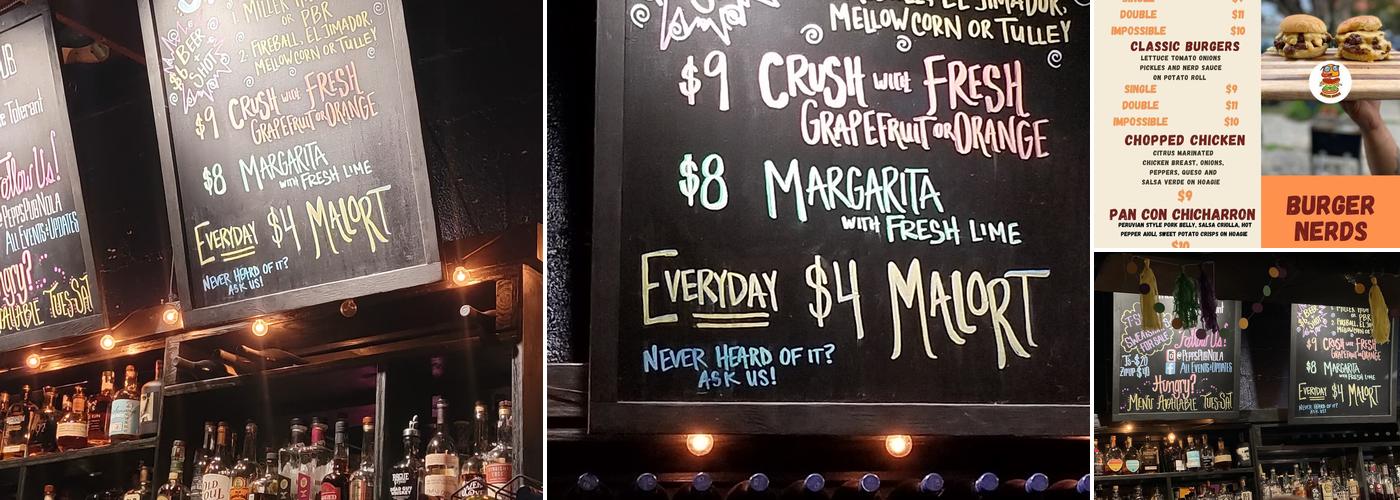 UB
e Tolerant
Follow Us!
@PeppsPubNola
All Events+Updates
Hungry?
Available Tues-Sat
$6
BEER
+
SHOTS
1. MILLER
OR PBR
2. FIREBALL, EL JIMADOR,
MELLOWCORN OR TULLEY
$9 CRUSH with FRESH
GRAPEFRUIT OR ORANGE
$8 MARGARITA
with FRESH LIME
EVERYDAY $4 MALORT
NEVER HEARD OF IT?
ASK US!
EL JIMADOR,
MELLOWCORN OR TULLEY
$9 CRUSH with FRESH
GRAPEFRUIT OR ORANGE
$8 MARGARITA
with FRESH LIME
EVERYDAY $4 MALORT
NEVER HEARD OF IT?
ASK US!
SINGLE
DOUBLE $11
IMPOSSIBLE $10
CLASSIC BURGERS
LETTUCE TOMATO ONIONS
PICKLES AND NERD SAUCE
ON POTATO ROLL
SINGLE $9
DOUBLE $11
IMPOSSIBLE $10
CHOPPED CHICKEN
CITRUS MARINATED
CHICKEN BREAST, ONIONS,
PEPPERS, QUESO AND
SALSA VERDE ON HOAGIE
$9
PAN CON CHICHARRON
PERUVIAN STYLE PORK BELLY, SALSA CRIOLLA, HOT
PEPPER AIOLI, SWEET POTATO CRISPS ON HOAGIE
$10
BURGER
NERDS
SWEATSHIRTS
FOR SALE
Ts-$20
Zipup $40
Follow Us!
@PeppsPubNola
All Events+Updates
Hungry?
Menu Available Tues-Sat
OR PBR
2. FIREBALL, EL
MELLOWCORN
$9 CRUSH with FRESH
GRAPEFRUIT OR ORANGE
$8 MARGARITA
with FRESH LIME
EVERYDAY $4 MALORT
NEVER HEARD OF IT?
ASK US!